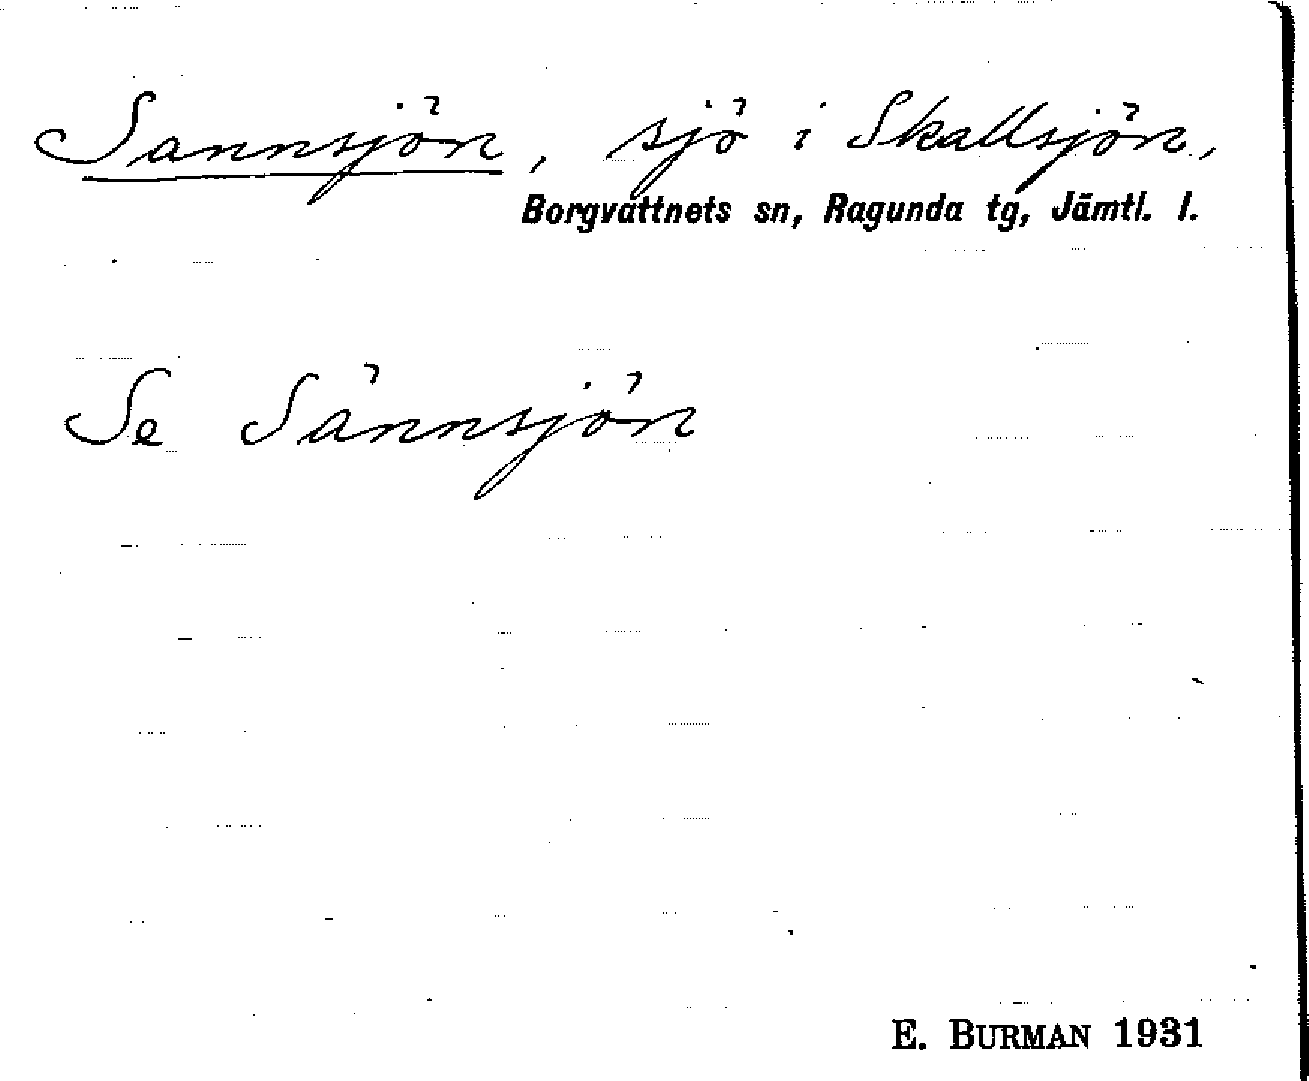 Sannsjön, sjö i Skallsjön,
Borgvattnets sn, Ragunda tg, Jämtl. l.
Se Sännsjön
E. BURMAN 1931